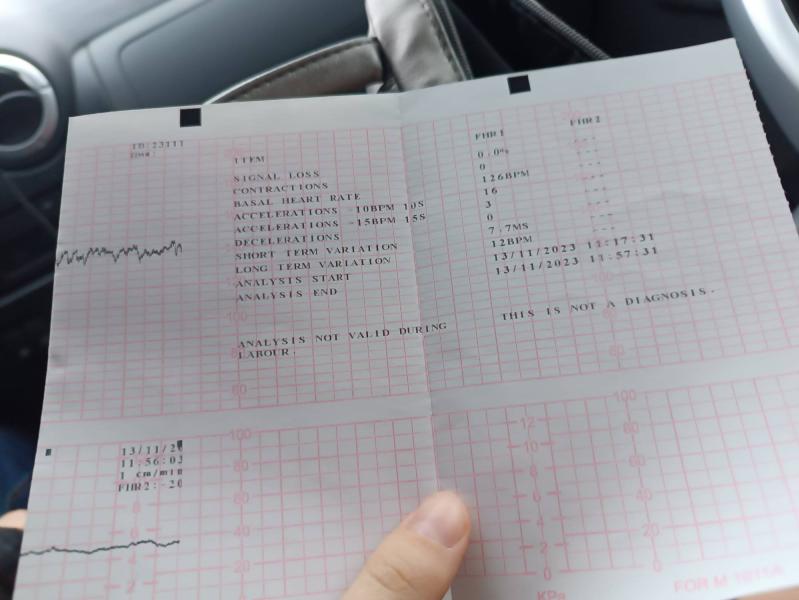 ID:23111
ITEM FHR1 FHR2
SIGNAL LOSS 0.0% ---
CONTRACTIONS 0 ---
BASAL HEART RATE 126BPM ---
ACCELERATIONS -10BPM 10S 16 ---
ACCELERATIONS -15BPM 15S 3 ---
DECELERATIONS 0 ---
SHORT TERM VARIATION 7.7MS ---
LONG TERM VARIATION 12BPM ---
ANALYSIS START 13/11/2023 11:17:31
ANALYSIS END 13/11/2023 11:57:31
100
80
60
ANALYSIS NOT VALID DURING
LABOUR.
THIS IS NOT A DIAGNOSIS.
13/11/20
11:56:03
1 cm/min
FHR2:-20
100
80
60
40
20
0
12
10
8
6
4
2
0
KPa
100
80
60
40
20
0
8
2